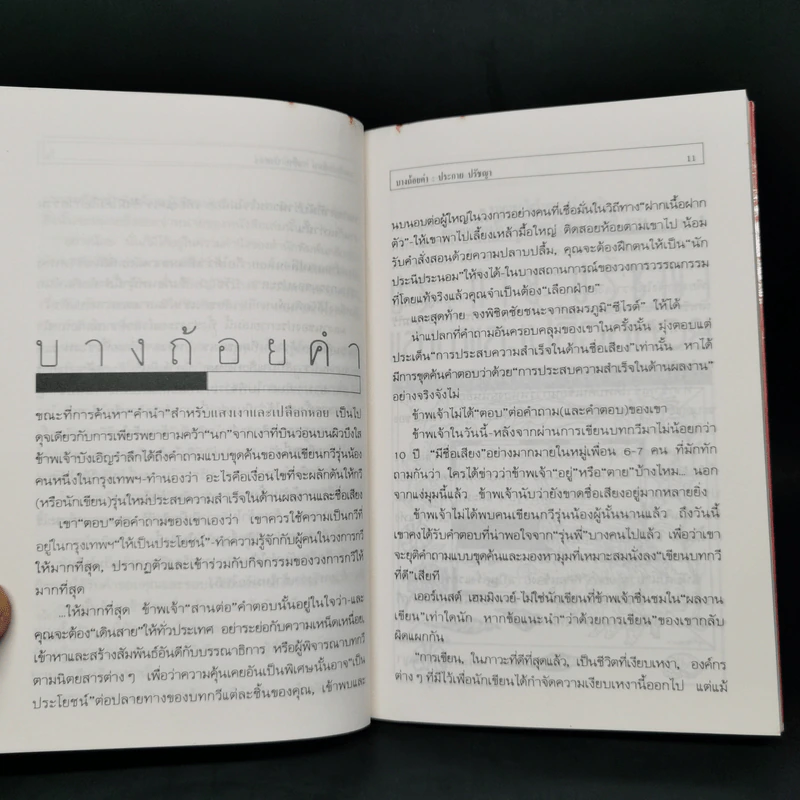 บางถ้อยคำ
ขณะที่การค้นหา“คำนำ”สำหรับแสงเงาและเปลือกหอย เป็นไป
ดุจเดียวกับการเพียรพยายามคว้า“นก”จากเงาที่บินว่อนบนผิวบึงใส
ข้าพเจ้าบังเอิญรำลึกได้ถึงคำถามแบบขุดค้นของคนเขียนกวีรุ่นน้อง
คนหนึ่งในกรุงเทพฯ-ทำนองว่า อะไรคือเงื่อนไขที่จะผลักดันให้กวี
(หรือนักเขียน)รุ่นใหม่ประสบความสำเร็จในด้านผลงานและชื่อเสียง
เขา“ตอบ”ต่อคำถามของเขาเองว่า เขาควรใช้ความเป็นกวีที่
อยู่ในกรุงเทพฯ“ให้เป็นประโยชน์”-ทำความรู้จักกับผู้คนในวงการกวี
ให้มากที่สุด, ปรากฏตัวและเข้าร่วมกับกิจกรรมของวงการกวีให้
มากที่สุด
...ให้มากที่สุด ข้าพเจ้า“สานต่อ”คำตอบนั้นอยู่ในใจว่า-และ
คุณจะต้อง“เดินสาย”ให้ทั่วประเทศ อย่าระย่อกับความเหน็ดเหนื่อย,
เข้าหาและสร้างสัมพันธ์อันดีกับบรรณาธิการ หรือผู้พิจารณาบทกวี
ตามนิตยสารต่างๆ เพื่อว่าความคุ้นเคยอันเป็นพิเศษนั้นอาจ“เป็น
ประโยชน์”ต่อปลายทางของบทกวีแต่ละชิ้นของคุณ, เข้าพบและ
บางถ้อยคำ : ประกาย ปรัชญา
11
นบนอบต่อผู้ใหญ่ในวงการอย่างคนที่เชื่อมั่นในวิถีทาง“ฝากเนื้อฝาก
ตัว”-ให้เขาพาไปเลี้ยงเหล้ามื้อใหญ่ ติดสอยห้อยตามเขาไป น้อม
รับคำสั่งสอนด้วยความปลาบปลื้ม, คุณจะต้องฝึกตนให้เป็น“นัก
ประนีประนอม”ให้จงได้-ในบางสถานการณ์ของวงการวรรณกรรม
ที่โดยแท้จริงแล้วคุณจำเป็นต้อง“เลือกฝ่าย”
และสุดท้าย จงพิชิตชัยชนะจากสมรภูมิ“ซีไรต์” ให้ได้
น่าแปลกที่คำถามอันครอบคลุมของเขาในครั้งนั้น มุ่งตอบแต่
ประเด็น“การประสบความสำเร็จในด้านชื่อเสียง”เท่านั้น หาได้
มีการขุดค้นคำตอบว่าด้วย“การประสบความสำเร็จในด้านผลงาน”
อย่างจริงจังไม่
ข้าพเจ้าไม่ได้“ตอบ”ต่อคำถาม(และคำตอบ)ของเขา
ข้าพเจ้าในวันนี้-หลังจากผ่านการเขียนบทกวีมาไม่น้อยกว่า
10 ปี -“มีชื่อเสียง”อย่างมากมายในหมู่เพื่อน 6-7 คน ที่มักทัก
ถามกันว่า ใครได้ข่าวว่าข้าพเจ้า“อยู่”หรือ“ตาย”บ้างไหม... นอก
จากแง่มุมนี้แล้ว ข้าพเจ้านับว่ายังขาดชื่อเสียงอยู่มากหลายยิ่ง
ข้าพเจ้าไม่ได้พบคนเขียนกวีรุ่นน้องผู้นั้นนานแล้ว ถึงวันนี้
เขาคงได้รับคำตอบที่น่าพอใจจาก“รุ่นพี่”บางคนไปแล้ว เพื่อว่าเขา
จะยุติคำถามแบบขุดค้นและมองหามุมที่เหมาะสมนั่งลง“เขียนบทกวี
ที่ดี”เสียที
เออร์เนสต์ เฮมมิงเวย์-ไม่ใช่นักเขียนที่ข้าพเจ้าชื่นชมใน“ผลงาน
เขียน”เท่าใดนัก หากข้อแนะนำ“ว่าด้วยการเขียน”ของเขากลับ
ผิดแผกกัน
“การเขียน, ในภาวะที่ดีที่สุดแล้ว, เป็นชีวิตที่เงียบเหงา, องค์กร
ต่างๆ ที่มีไว้เพื่อนักเขียนได้กำจัดความเงียบเหงานี้ออกไป แต่แม้